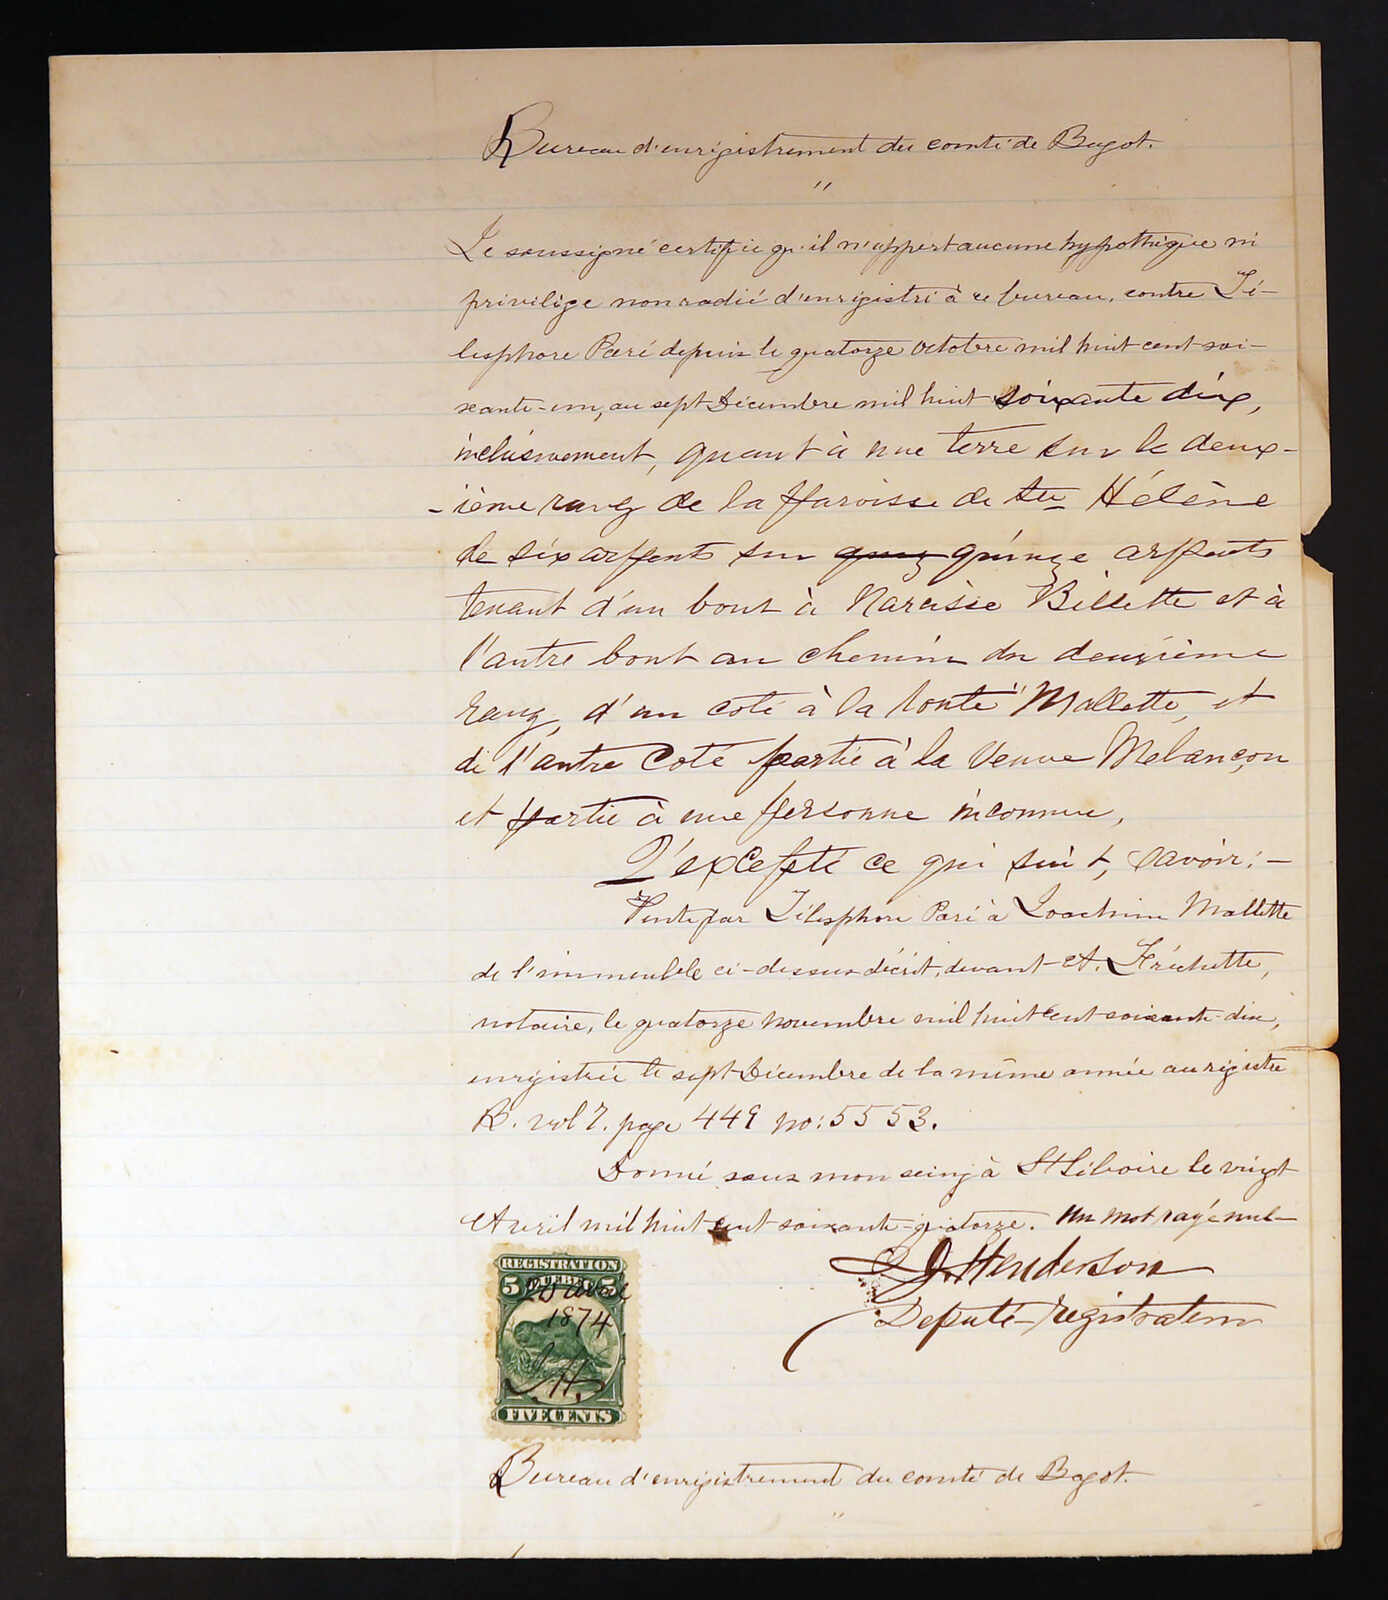 Bureau d'enregistrement du comté de Bagot.
"
Le soussigné certifie qu'il n'appert aucune hypothèque ni
privilège non radié d'enrégistré à ce bureau, contre Té-
lesphore Paré depuis le quatorze octobre mil huit cent soi-
xante-un, au sept Décembre mil huit soixante dix,
inclusivement, quant à une terre sur le deux-
-ième rang de la Paroisse de Ste Hélène
de six arpents sur quinze arpents
tenant d'un bout à Narcisse Billette et à
l'autre bout au chemin du deuxième
rang, d'un coté à la route "Mallette, et
de l'autre Coté partie à la Veuve Mélançon
et partie à une personne inconnue,
D'excepté ce qui suit, savoir:-
Vente par Télesphore Paré à Joachim Mallette
de l'immeuble ci-dessus décrit, devant A. Fréchette,
notaire, le quatorze novembre mil huit cent soixante-dix,
enrégistrée le sept Décembre de la même année au régistre
B. vol 7. page 449 no: 5553.
Donné sous mon seing à St Liboire le vingt
Avril mil huit cent soixante-quatorze. Un mot rayé nul-
J. Henderson
Député-régistrateur
REGISTRATION
5 QUEBEC 5
20 Avril
1874
J.H.
FIVE CENTS
Bureau d'enrégistrement du comté de Bagot.
"